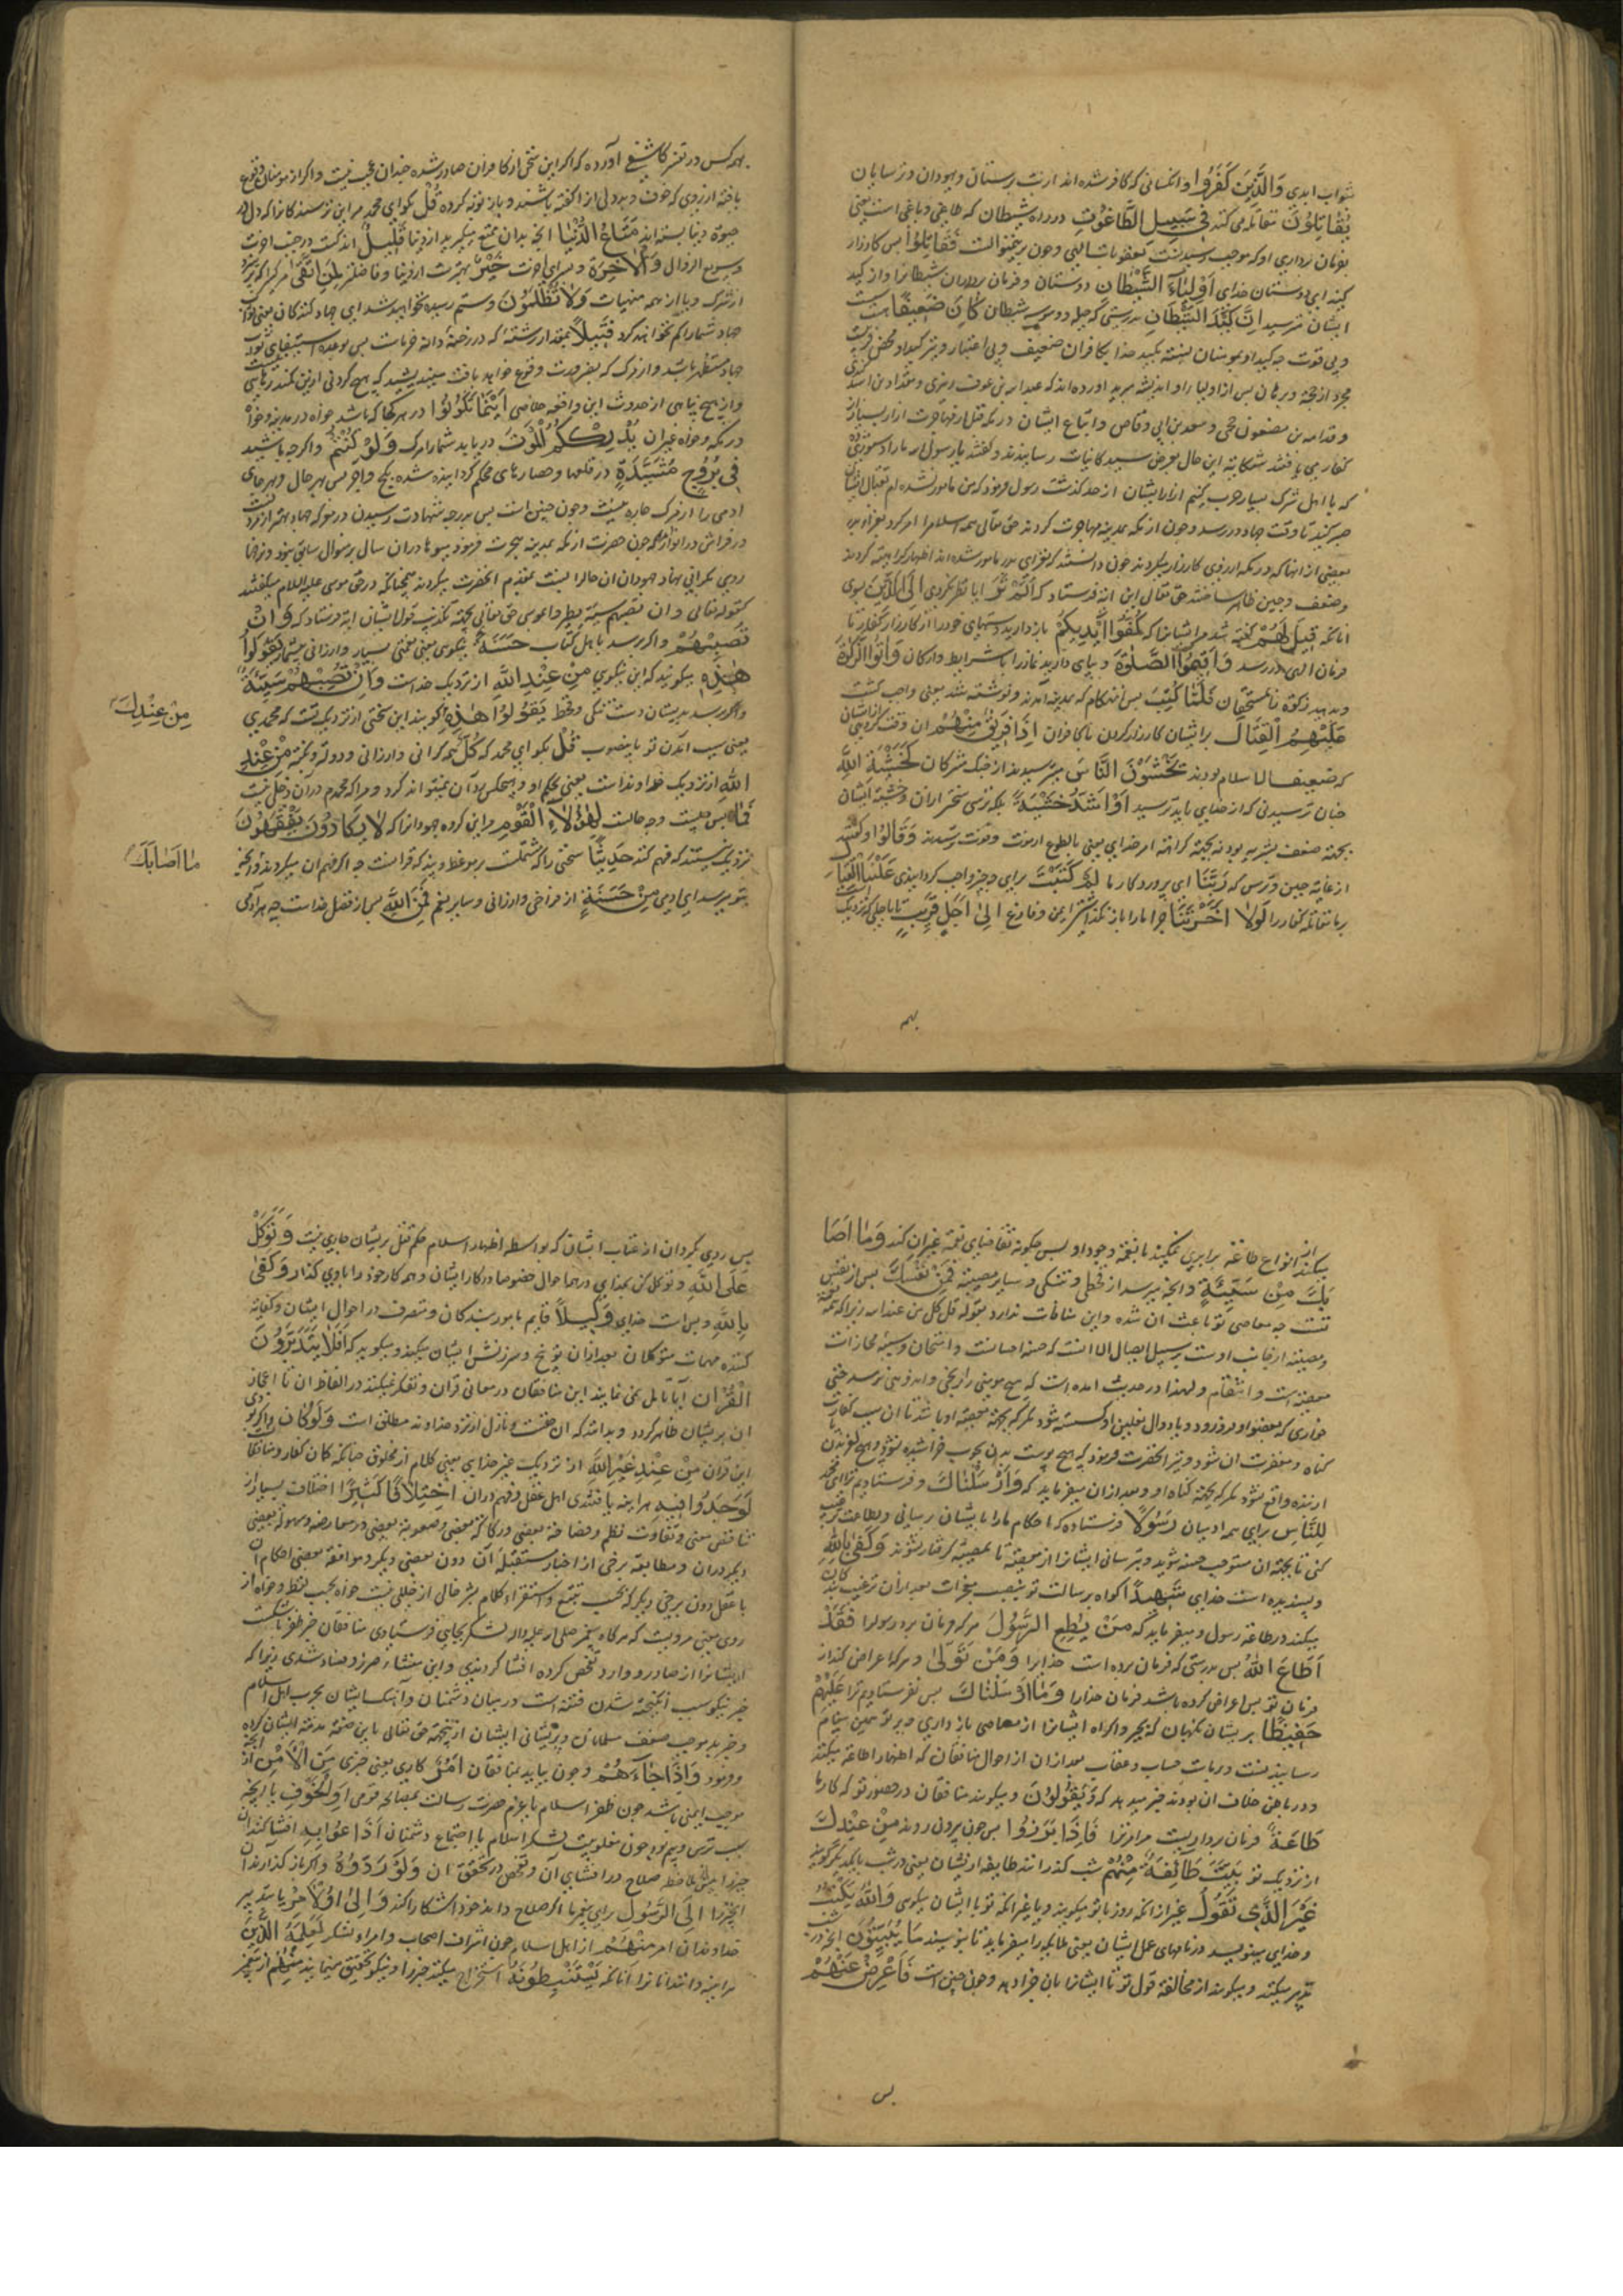 ثواب ابدی وَالَّذِينَ كَفَرُوا وآنکسانی که کافر شده اند از بت پرستان ویهودان وترسایان
يُقَاتِلُونَ مقاتله می کنند فِي سَبِيلِ الطَّاغُوتِ در راه شیطان که طاغی وباغی است یعنی
بفرمان برداری او که موجب فَقَاتِلُوا پس کارزار
کنید ای دوستان خدای أَوْلِيَاءَ الشَّيْطَانِ دوستان وفرمان برداران شیطانرا واز کید
ایشان مترسید إِنَّ كَيْدَ الشَّيْطَانِ بدرستی که حیله ووسوسه شیطان كَانَ ضَعِيفًا هست
وبی قوت چه کید او بمومنان نسبت بکید خدا بکافران ضعیف وبی اعتبار
اورده اند که عبدالرحمن بن عوف زهری ومقداد بن اسود کندی
وقدامه بن مظعون جمحی وسعد بن ابی وقاص واتباع ایشان در مکه قبل از مهاجرت ازار بسیار از
کفار می یافتند شکایت این حال بعرض سید کاینات رسانیدند وگفتند یا رسول الله ما را دستوری ده
که با اهل شرک حرب کنیم ازار ایشان از حد گذشت رسول فرمود که من مامور نشده ام بقتال ایشان
صبر کنید تا وقت جهاد در رسد وچون از مکه بمدینه مهاجرت کردند حق تعالی همه اسلامرا امر کرد بغزاء بدر
بعضی از انها که در مکه ارزوی کارزار میکردند چون دانستند که بغزای بدر مامور شده اند اظهار کراهیت کردند
وضعف وجبن ظاهر ساختند حق تعالی این ایه فرستاد که أَلَمْ تَرَ ایا نظر نکردی إِلَى الَّذِينَ بسوی
انانکه قِيلَ لَهُمْ گفته شد مر ایشانرا که كُفُّوا أَيْدِيَكُمْ باز دارید دستهای خود را از کارزار کفار تا
فرمان الهی در رسد وَأَقِيمُوا الصَّلَوةَ وبپای دارید نماز را با شرایط وارکان وَآتُوا الزَّكَوةَ
وبدهید زکوة را بمستحقان فَلَمَّا كُتِبَ پس آن هنگام که بمدینه آمدند ونوشته شد یعنی واجب گشت
عَلَيْهِمُ الْقِتَالُ بر ایشان کارزار کردن با کافران إِذَا فَرِيقٌ مِنْهُمْ ان وقت گروهی از ایشان
که ضعیف الاسلام بودند يَخْشَوْنَ النَّاسَ میترسیدند از جنگ مشرکان كَخَشْيَةِ اللَّهِ
چنان ترسیدنی که از خدای باید ترسید أَوْ أَشَدَّ خَشْيَةً بلکه ترسی سختر از ان وخشیت ایشان
بجهت ضعف بشریه بود نه بجهت کراهت امر خدای یعنی بالطبع از موت وفوت ترسیدند وَقَالُوا وگفتند
از غایه جبن وترس که رَبَّنَا ای پروردگار ما لِمَ كَتَبْتَ برای چه چیز واجب گردانیدی عَلَيْنَا الْقِتَالَ
بر ما مقاتله کفار را لَوْلَا أَخَّرْتَنَا چرا ما را باز نگذاشتی ایمن وفارغ إِلَىٰ أَجَلٍ قَرِيبٍ تا باجلی که نزدیک
بهم
بهمه کس در تفسیر کاشفی آورده که اگر این سخن از کافران صادر شده چندان عجب نیست واگر از مومنان وقوع
یافته از روی خوف وبددلی از ان گفته باشند وباز توبه کرده قُلْ بگو ای محمد مر این ترسندگانرا که دل در
حیوة دنیا بسته اند مَتَاعُ الدُّنْيَا انچه بدان تمتع میگیرید از دنیا قَلِيلٌ اندکست در جنب اخرت
وسریع الزوال وَالْآخِرَةُ وسرای اخرت خَيْرٌ بهترست از دنیا وفاضلتر لِمَنِ اتَّقَىٰ مر کسی که بپرهیزد
از شرک ویا از همه منهیات وَلَا تُظْلَمُونَ وستم رسیده نخواهید شد ای جهاد کنندگان یعنی ثواب
جهاد شما را کم نخواهند کرد فَتِيلًا بمقدار رشته که در رخنه دانه خرماست پس بوعده استیفای ثواب
جهاد مستظهر باشید واز مرگ که بضرورت وقوع خواهد یافت میندیشید که هیچ گردنی از این کمند رهایی
واز هیچ پناهی از حدوث این واقعه خلاصی أَيْنَمَا تَكُونُوا در هر کجا که باشید خواه در مدینه وخواه
در مکه وخواه غیر ان يُدْرِكْكُمُ الْمَوْتُ در یابد شما را مرگ وَلَوْ كُنْتُمْ واگرچه باشید
فِي بُرُوجٍ مُشَيَّدَةٍ در قلعها وحصارهای محکم گردانیده شده بگچ واجر پس بهر حال وبهر جای
ادمی را از مرگ چاره نیست وچون چنین است پس بدرجه شهادت رسیدن در معرکه جهاد بهتر از مردن
در فراش در انوار چون حضرت از مکه بمدینه هجرت فرمود میوها در ان سال بر منوال سابق نبود ونرخها
روی بگرانی نهاد جهودان ان حال را نسبت بمقدم انحضرت میکردند همچنانکه در حق موسی علیه السلام میگفتند
کقوله تعالی وان تصبهم سیئة یطیروا بموسی حق تعالی بجهت تکذیب قول ایشان ایه فرستاد که وَإِنْ
تُصِبْهُمْ واگر برسد باهل کتاب حَسَنَةٌ نیکویی یعنی نعمتی بسیار وارزانی بیشمار يَقُولُوا
هَٰذِهِ میگویند که این نیکویی مِنْ عِنْدِ اللَّهِ از نزدیک خداست وَإِنْ تُصِبْهُمْ سَيِّئَةٌ
واگر برسد بدیشان دست تنگی وقحط يَقُولُوا هَٰذِهِ گویند این سختی از نزدیک تست که محمدی
مِنْ عِنْدِكَ
یعنی بسبب آمدن تو یا بغضوب قُلْ بگو ای محمد که كُلٌّ همه گرانی وارزانی ودولت ونکبت مِنْ عِنْدِ
اللَّهِ از نزدیک خداوند است یعنی بحکم او وهیچکس آن نمیتواند کرد ومرا که محمدم در آن دخلی نیست
فَمَا پس چیست وچه حالست لِهَٰؤُلَاءِ الْقَوْمِ مر این گروه جهودانرا که لَا يَكَادُونَ يَفْقَهُونَ
نزدیک نیستند که فهم کنند حَدِيثًا سخنی را که مشتملست بر موعظه وپند که قرانست چه اگر فهم ان میکردند
مَا أَصَابَكَ
بتو برسد ای ادمی مِنْ حَسَنَةٍ از فراخی وارزانی وسایر نعم فَمِنَ اللَّهِ پس از فضل خداست چه هر آدمی
میکند از انواع طاعة برابری نمیکند با نعمت وجود او پس چگونه تقاضای نعمت غیر ان کند وَمَا أَصَا
بَكَ مِنْ سَيِّئَةٍ وانچه میرسد از قحطی وتنگی وسایر مصیبت فَمِنْ نَفْسِكَ پس از نفس
تست چه معاصی تو باعث ان شده واین منافات ندارد بقوله قل کل من عند الله زیرا که نعمة
ومصیبة از جانب اوست بر سبیل ایصال الا انست که حسنه احسانست وامتحان وسیئه مجازات
معصیتست وانتقام ولهذا در حدیث امده است که هیچ مومنی را رنجی واندوهی نرسد حتی
خاری که بعضو او فرو رود ویا دوال نعلین او گسسته شود مگر که بجهت معصیة او باشد تا ان سبب کفارت
گناه ومغفرت ان شود ونیز انحضرت فرمود که هیچ پوست بدن بچوب خراشیده نشود وهیچ لغزیدن
از بنده واقع نشود مگر که بجهت گناه او وبعد از ان میفرماید که وَأَرْسَلْنَاكَ وفرستادیم ترا ای محمد
لِلنَّاسِ برای همه ادمیان رَسُولًا فرستاده که احکام ما را بایشان رسانی وبطاعت ترغیب
کنی تا بجهت ان مستوجب حسنه شوند وبترسانی ایشانرا از معصیت تا بمصیبت گرفتار نشوند وَكَفَىٰ بِاللَّهِ
وبسنده است خدای شَهِيدًا گواه برسالت تو بنصب معجزات بعد از ان ترغیب بندگان
میکند در طاعة رسول ومیفرماید که مَنْ يُطِعِ الرَّسُولَ هر که فرمان برد رسولرا فَقَدْ
أَطَاعَ اللَّهَ پس بدرستی که فرمان برده است خدایرا وَمَنْ تَوَلَّىٰ وهر که اعراض کند از
فرمان تو پس اعراض کرده باشد از فرمان خدا را وَمَا أَرْسَلْنَاكَ پس نفرستادیم ترا عَلَيْهِمْ
حَفِيظًا بر ایشان نگهبان که بجبر واکراه ایشانرا از معاصی باز داری وبر تو همین پیغام
رسانیدنست وبر ماست حساب وعقاب بعد از ان از احوال منافقان که اظهار اطاعة میکنند
ودر باطن خلاف ان بودند خبر میدهد که وَيَقُولُونَ ومیگویند منافقان در حضور تو که کار ما
طَاعَةٌ فرمان برداریست مر امر ترا فَإِذَا بَرَزُوا پس چون بیرون روند مِنْ عِنْدِكَ
از نزدیک تو بَيَّتَ طَائِفَةٌ مِنْهُمْ شب گذرانند طایفه از ایشان یعنی در شب با یکدیگر گویند
غَيْرَ الَّذِي تَقُولُ غیر از انکه روز با تو میگویند ویا غیر انکه تو با ایشان میگویی وَاللَّهُ يَكْتُبُ
وخدای مینویسد در نامهای عمل ایشان یعنی ملایکه را میفرماید تا بنویسند مَا يُبَيِّتُونَ انچه در شب
تدبیر میکنند ومیگویند از مخالفة قول تو تا ایشانرا بان جزا دهد وچون چنین است فَأَعْرِضْ عَنْهُمْ
پس
پس روی بگردان از عتاب ایشان که بواسطه اظهار اسلام حکم قتل بر ایشان جاری نیست وَتَوَكَّلْ
عَلَى اللَّهِ وتوکل کن بخدای در همه احوال خصوصا در کار ایشان وهمه کار خود را باو وی گذار وَكَفَىٰ
بِاللَّهِ وبس است خدای وَكِيلًا قایم بامور بندگان ومتصرف در احوال ایشان وکفایة
کننده مهمات متوکلان بعد از ان توبیخ وسرزنش ایشان میکند ومیگوید که أَفَلَا يَتَدَبَّرُونَ
الْقُرْآنَ آیا تامل نمی نمایند این منافقان در معانی قران وتفکر نمیکنند در الفاظ ان تا اعجاز
ان بر ایشان ظاهر گردد وبدانند که ان حقست ونازل از نزد خداوند مطلق است وَلَوْ كَانَ واگر بودی
این قران مِنْ عِنْدِ غَيْرِ اللَّهِ از نزدیک غیر خدای یعنی کلام از مخلوق چنانکه گمان کفار ومنافقان
لَوَجَدُوا فِيهِ هر اینه یافتندی اهل عقل وفهم در ان اخْتِلَافًا كَثِيرًا اختلاف بسیار از
تناقض معنی وتفاوت نظم وفصاحة بعضی ورکاکة بعضی وصعوبة بعضی در معارضه وسهولة بعضی
دیگر در ان ومطابقه برخی از اخبار مستقبله آن دون بعضی دیگر وموافقه بعضی احکام ان
با عقل دون برخی دیگر که بحسب تتبع واستقراء کلام بشر خالی از خللی نیست خواه بحسب لفظ وخواه از
روی معنی مرویست که هرگاه پیغمبر صلی الله علیه واله لشکر بجایی فرستادی منافقان خبر ظفر یا شکست
ایشانرا از صادر ووارد تفحص کرده افشا کردندی واین منشاء ضرر وفساد شدی زیرا که
خبر نیکو سبب انگیخته شدن فتنه است در میان دشمنان بحرب اهل اسلام
وخبر بد موجب ضعف مسلمانان وپریشانی ایشان ازینجهت حق تعالی باین صفة مذمة ایشان کرده
وفرمود وَإِذَا جَاءَهُمْ وچون بیاید بمنافقان أَمْرٌ کاری یعنی خبری مِنَ الْأَمْنِ از
موجب ایمنی باشد چون ظفر اسلام یا عزم حضرت رسالت بمصالحه قومی أَوِ الْخَوْفِ یا انچه
سبب ترس وبیم بود چون مغلوبیت لشکر اسلام یا اجتماع دشمنان أَذَاعُوا بِهِ افشا کنند ان
خبر را بی ملاحظه صلاح در افشای آن وتفحص در تحقق ان وَلَوْ رَدُّوهُ واگر باز گذارند ان
خبر را إِلَى الرَّسُولِ برای پیغمبر تا اگر صلاح داند خود اشکارا کند وَإِلَىٰ أُولِي الْأَمْرِ یا بتدبیر
خداوندان امر مِنْهُمْ از اهل اسلام چون اشراف اصحاب وامراء لشکر لَعَلِمَهُ الَّذِينَ
هر اینه دانند انرا آنانکه يَسْتَنْبِطُونَهُ استخراج میکنند خبر را ونیکو تحقیق مینمایند مِنْهُمْ از پیغمبر